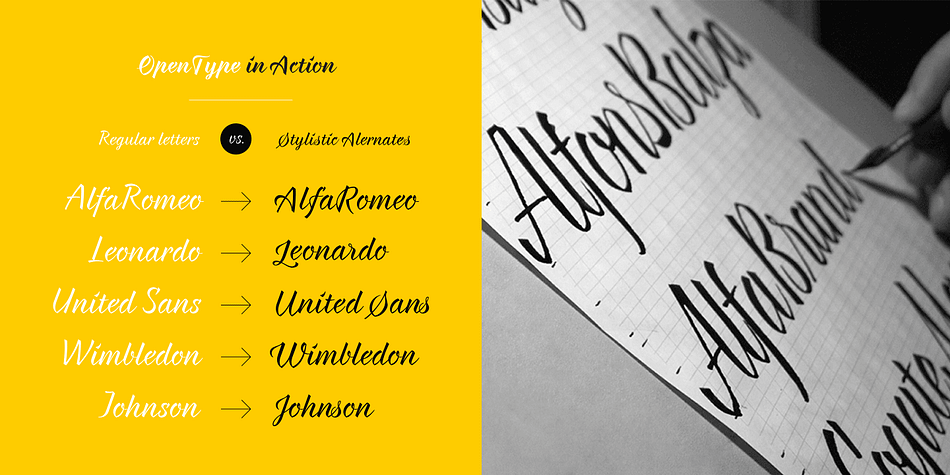 OpenType in Action
Regular letters vs. Stylistic Alernates
AlfaRomeo → AlfaRomeo
Leonardo → Leonardo
United Sans → United Sans
Wimbledon → Wimbledon
Johnson → Johnson
AlfonsBalga
AlfaBrand